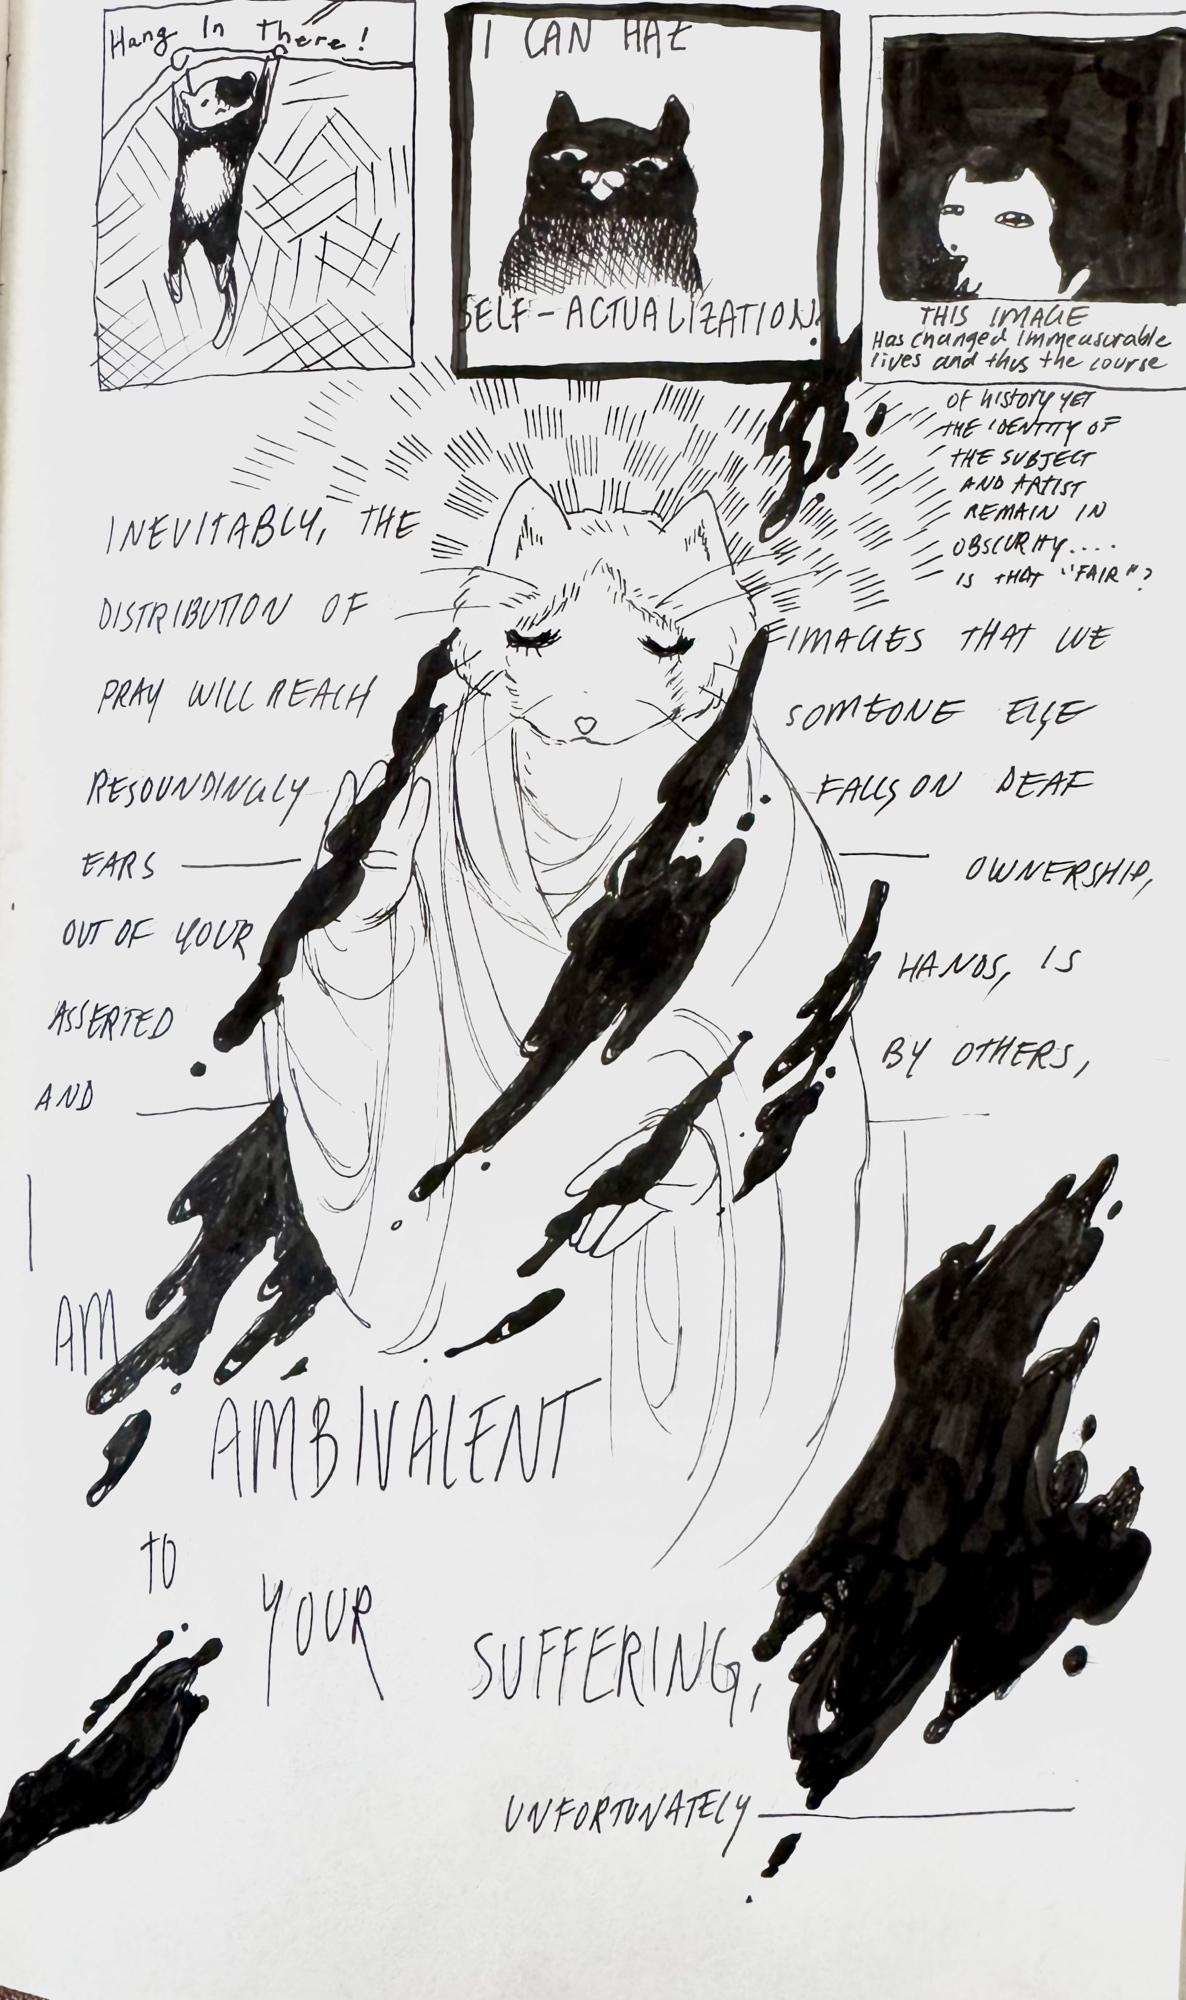 Hang In There!
I CAN HAZ
SELF-ACTUALIZATION?
THIS IMAGE
Has changed immeasurable
lives and thus the course
OF HISTORY YET
THE IDENTITY OF
THE SUBJECT
AND ARTIST
REMAIN IN
OBSCURITY....
IS THAT "FAIR"?
INEVITABLY, THE
DISTRIBUTION OF IMAGES THAT WE
PRAY WILL REACH SOMEONE ELSE
RESOUNDINGLY FALLS ON DEAF
EARS — OWNERSHIP,
OUT OF YOUR HANDS, IS
ASSERTED BY OTHERS,
AND —
I
AM
AMBIVALENT
TO
YOUR
SUFFERING,
UNFORTUNATELY —